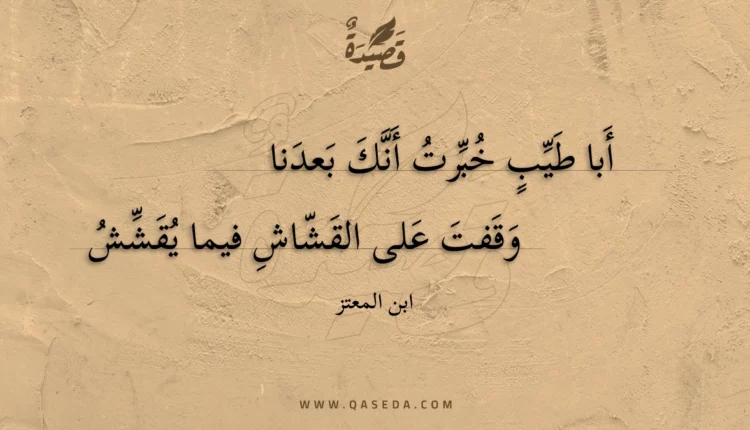 قَصِيدَةٌ
أَبا طَيِّبٍ خُبِّرتُ أَنَّكَ بَعدَنا
وَقَفتَ عَلى القَشّاشِ فيما يُقَشِّشُ
ابن المعتز
WWW.QASEDA.COM